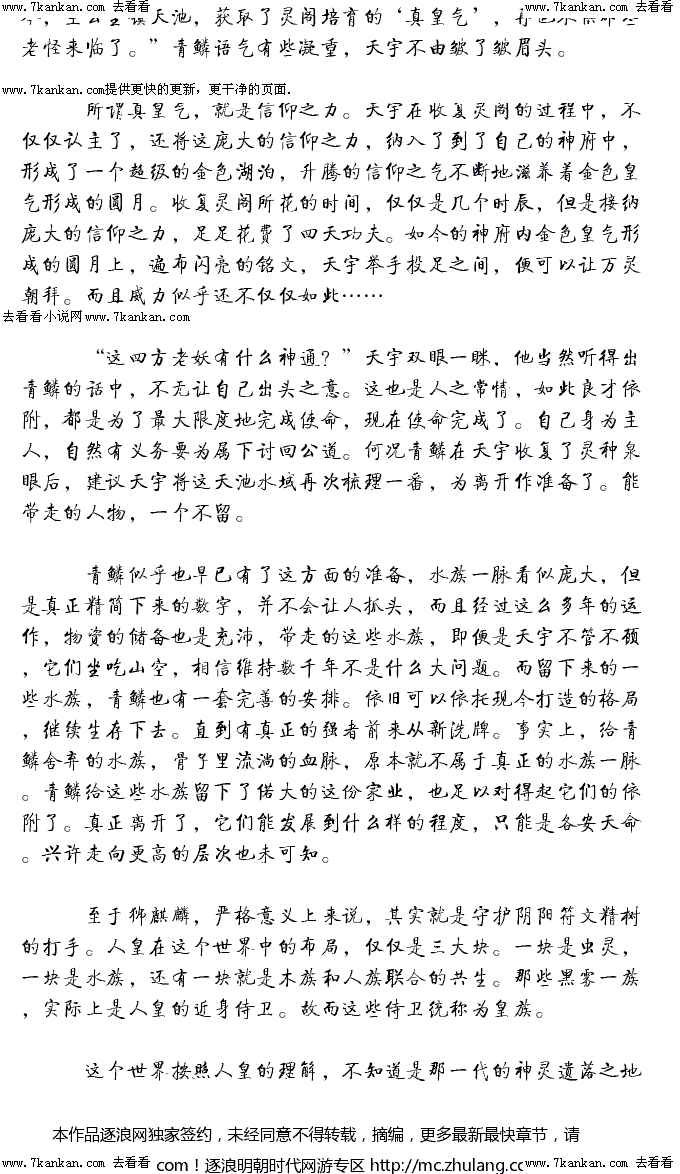 www.7kankan.com 去看看 www.7kankan.com 去看看 www.7kankan.com 去看看 www.7kankan.com 去看看 www.7kankan.com 去看看
天池，获取了灵阁培育的‘真皇气’，
老怪来临了。”青鳞语气有些凝重，天宇不由皱了皱眉头。
www.7kankan.com提供更快的更新，更干净的页面.
所谓真皇气，就是信仰之力。天宇在收复灵阁的过程中，不
仅仅认主了，还将这庞大的信仰之力，纳入了到了自己的神府中，
形成了一个超级的金色湖泊，升腾的信仰之气不断地滋养着金色皇
气形成的圆月。收复灵阁所花的时间，仅仅是几个时辰，但是接纳
庞大的信仰之力，足足花费了四天功夫。如今的神府内金色皇气形
成的圆月上，遍布闪亮的铭文，天宇举手投足之间，便可以让万灵
朝拜。而且威力似乎还不仅仅如此……
去看看小说网www.7kankan.com
“这四方老妖有什么神通？”天宇双眼一眯，他当然听得出
青鳞的话中，不无让自己出头之意。这也是人之常情，如此良才依
附，都是为了最大限度地完成使命，现在使命完成了。自己身为主
人，自然有义务要为属下讨回公道。何况青鳞在天宇收复了灵种泉
眼后，建议天宇将这天池水域再次梳理一番，为离开作准备了。能
带走的人物，一个不留。
青鳞似乎也早已有了这方面的准备，水族一脉看似庞大，但
是真正精简下来的数字，并不会让人抓头，而且经过这么多年的运
作，物资的储备也是充沛，带走的这些水族，即便是天宇不管不顾
，它们坐吃山空，相信维持数千年不是什么大问题。而留下来的一
些水族，青鳞也有一套完善的安排。依旧可以依托现今打造的格局
，继续生存下去。直到有真正的强者前来从新洗牌。事实上，给青
鳞舍弃的水族，骨子里流淌的血脉，原本就不属于真正的水族一脉
。青鳞给这些水族留下了偌大的这份家业，也足以对得起它们的依
附了。真正离开了，它们能发展到什么样的程度，只能是各安天命
。兴许走向更高的层次也未可知。
至于狮麒麟，严格意义上来说，其实就是守护阴阳符文精树
的打手。人皇在这个世界中的布局，仅仅是三大块。一块是虫灵，
一块是水族，还有一块就是木族和人族联合的共生。那些黑雾一族
，实际上是人皇的近身侍卫。故而这些侍卫统称为皇族。
这个世界按照人皇的理解，不知道是那一代的神灵遗落之地
本作品逐浪网独家签约，未经同意不得转载，摘编，更多最新最快章节，请
www.7kankan.com 去看看 com！逐浪明朝时代网游专区 http://mc.zhulang.co www.7kankan.com 去看看